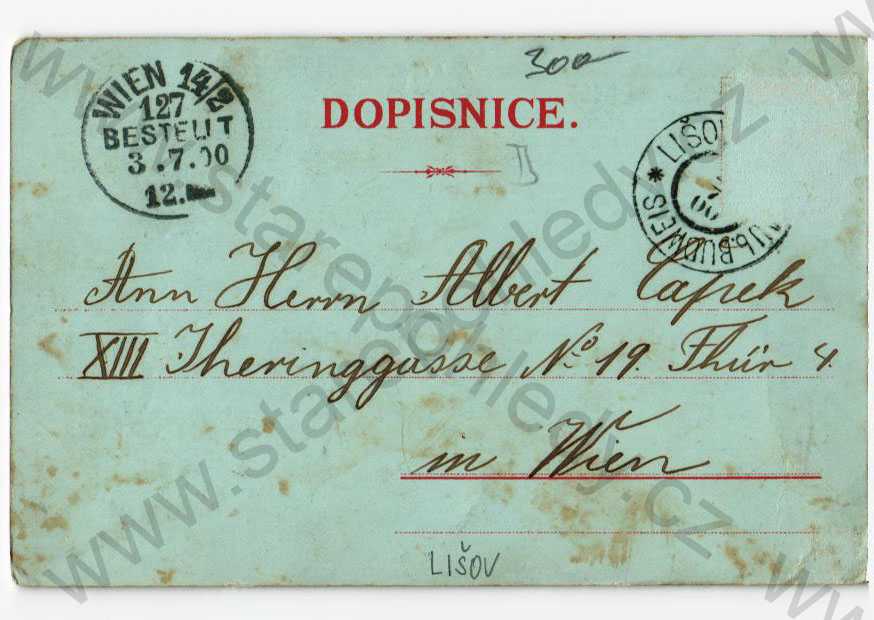 WIEN 14/2
127
BESTELLT
3.7.00
12.
300
DOPISNICE.
* LIŠOV
00
BUDWEIS
Ann Herrn Albert Capek
XIII Iheringgasse No 19. Thür 4.
in Wien
LIŠOV
www.starepohledy.cz